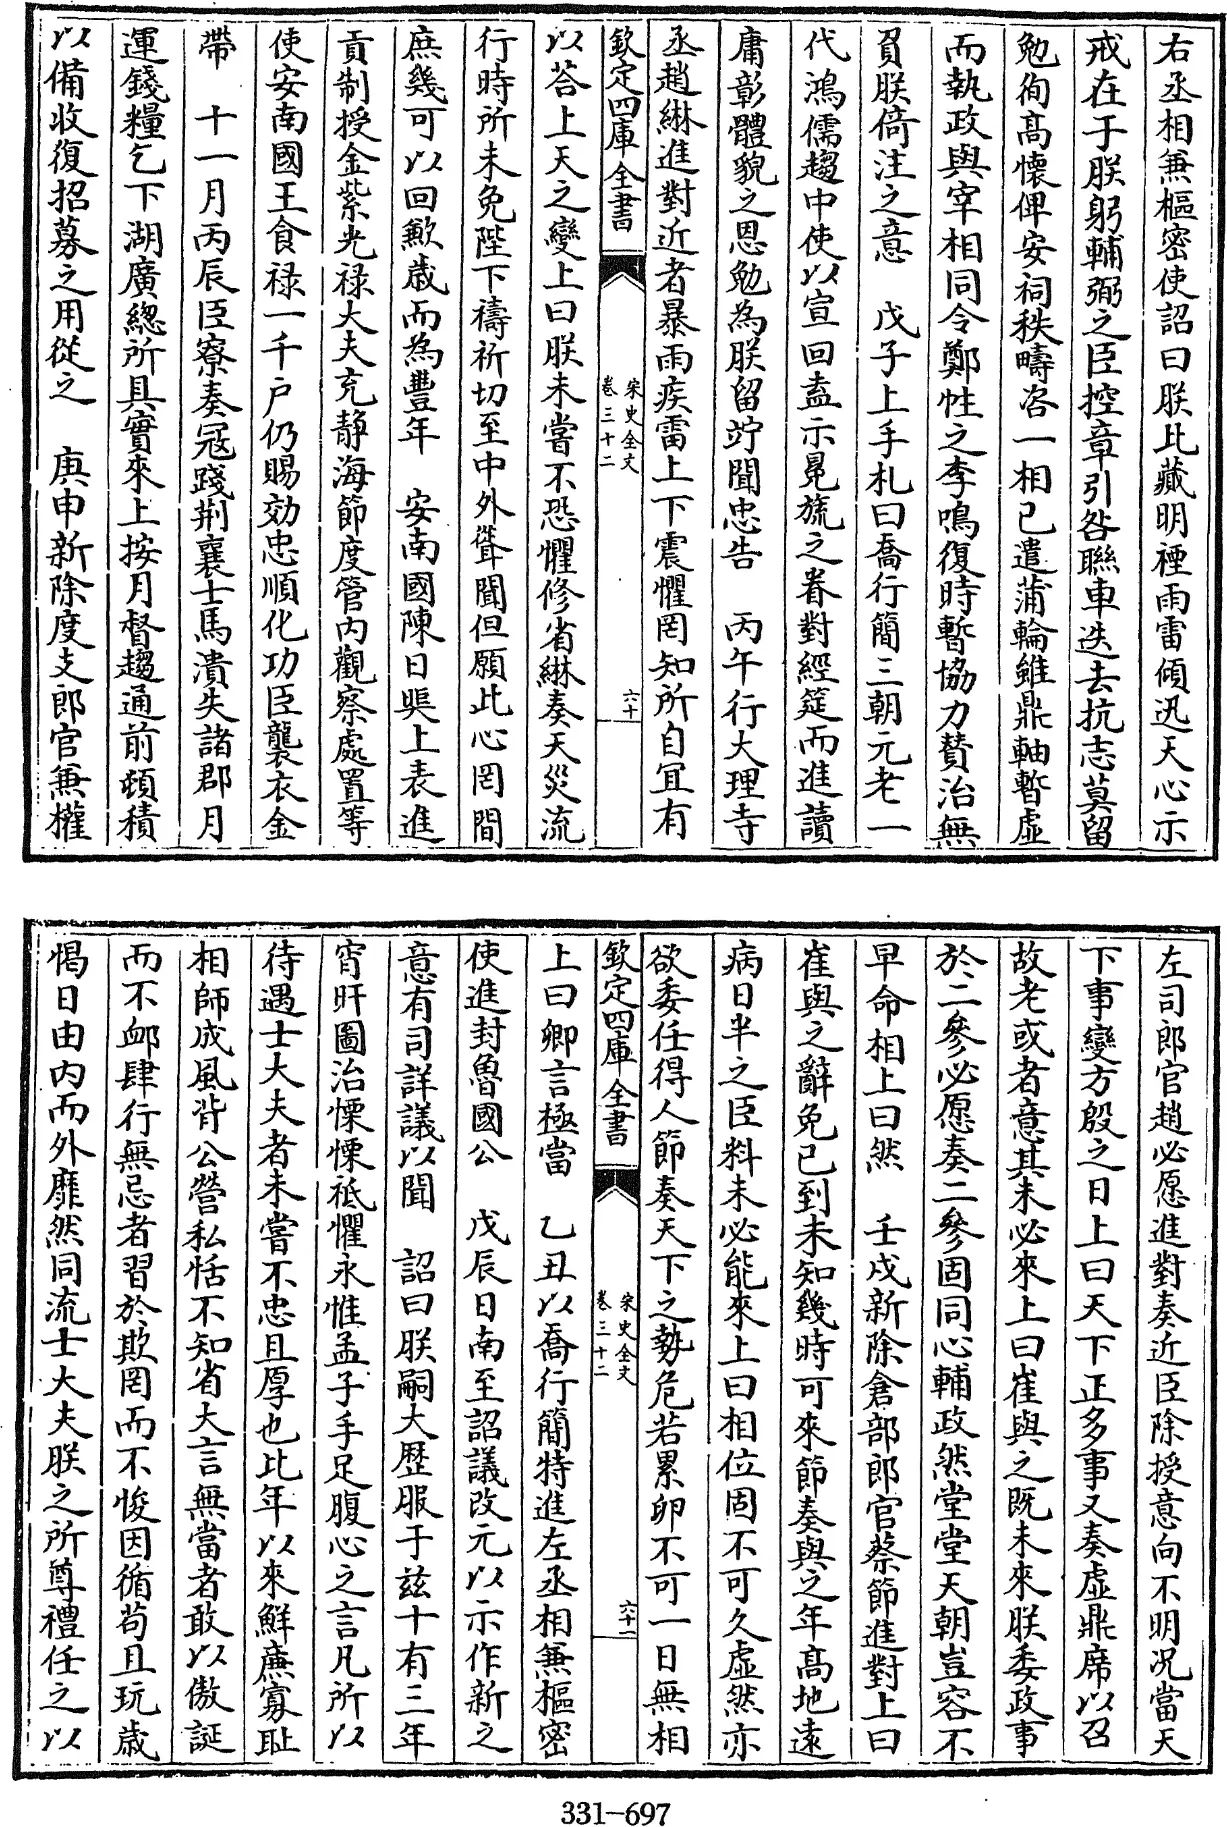 右丞相兼樞密使詔曰朕比藏明禋雨雷傾迅天心示
戒在于朕躬輔弼之臣控章引咎聯車迭去抗志莫留
勉徇高懷俾安祠秩疇咨一相已遣蒲輪雖鼎軸暫虛
而執政與宰相同令鄭性之李鳴復時暫協力賛治無
負朕倚注之意　戊子上手札曰喬行簡三朝元老一
代鴻儒趨中使以宣回盍示晃旒之眷對經筵而進讀
庸彰體貌之恩勉為朕留竚聞忠告　丙午行大理寺
丞趙綝進對近者暴雨疾雷上下震懼罔知所自宜有
欽定四庫全書
宋史全文
卷三十二
六十
以荅上天之變上曰朕未嘗不恐懼修省綝奏天災流
行時所未免陛下禱祈切至中外聳聞但願此心罔間
庶幾可以回歉歲而為豐年　安南國陳日煚上表進
貢制授金紫光祿大夫充静海節度管内觀察處置等
使安南國王食祿一千户仍賜効忠順化功臣襲衣金
帶　十一月丙辰臣寮奏冦踐荆襄士馬潰失諸郡月
運錢糧乞下湖廣總所具實來上按月督趨通前頓積
以備收復招募之用從之　庚申新除度支郎官兼權
左司郎官趙必愿進對奏近臣除授意向不明况當天
下事變方殷之日上曰天下正多事又奏虛鼎席以召
故老或者意其未必來上曰崔與之既未來朕委政事
於二參必愿奏二參固同心輔政然堂堂天朝豈容不
早命相上曰然　壬戌新除倉部郎官蔡節進對上曰
崔與之辭免已到未知幾時可來節奏與之年高地遠
病日半之臣料未必能來上曰相位固不可久虛然亦
欲委任得人節奏天下之勢危若累卵不可一日無相
欽定四庫全書
宋史全文
卷三十二
六十一
上曰卿言極當　乙丑以喬行簡特進左丞相兼樞密
使進封魯國公　戊辰日南至詔議改元以示作新之
意有司詳議以聞　詔曰朕嗣大歷服于兹十有三年
宵旰圖治慄慄祗懼永惟孟子手足腹心之言凡所以
待遇士大夫者未嘗不忠且厚也比年以來鮮廉寡耻
相師成風背公營私恬不知省大言無當者敢以傲誕
而不䘏肆行無忌者習於欺罔而不悛因循苟且玩歲
愒日由内而外靡然同流士大夫朕之所尊禮任之以
331-697